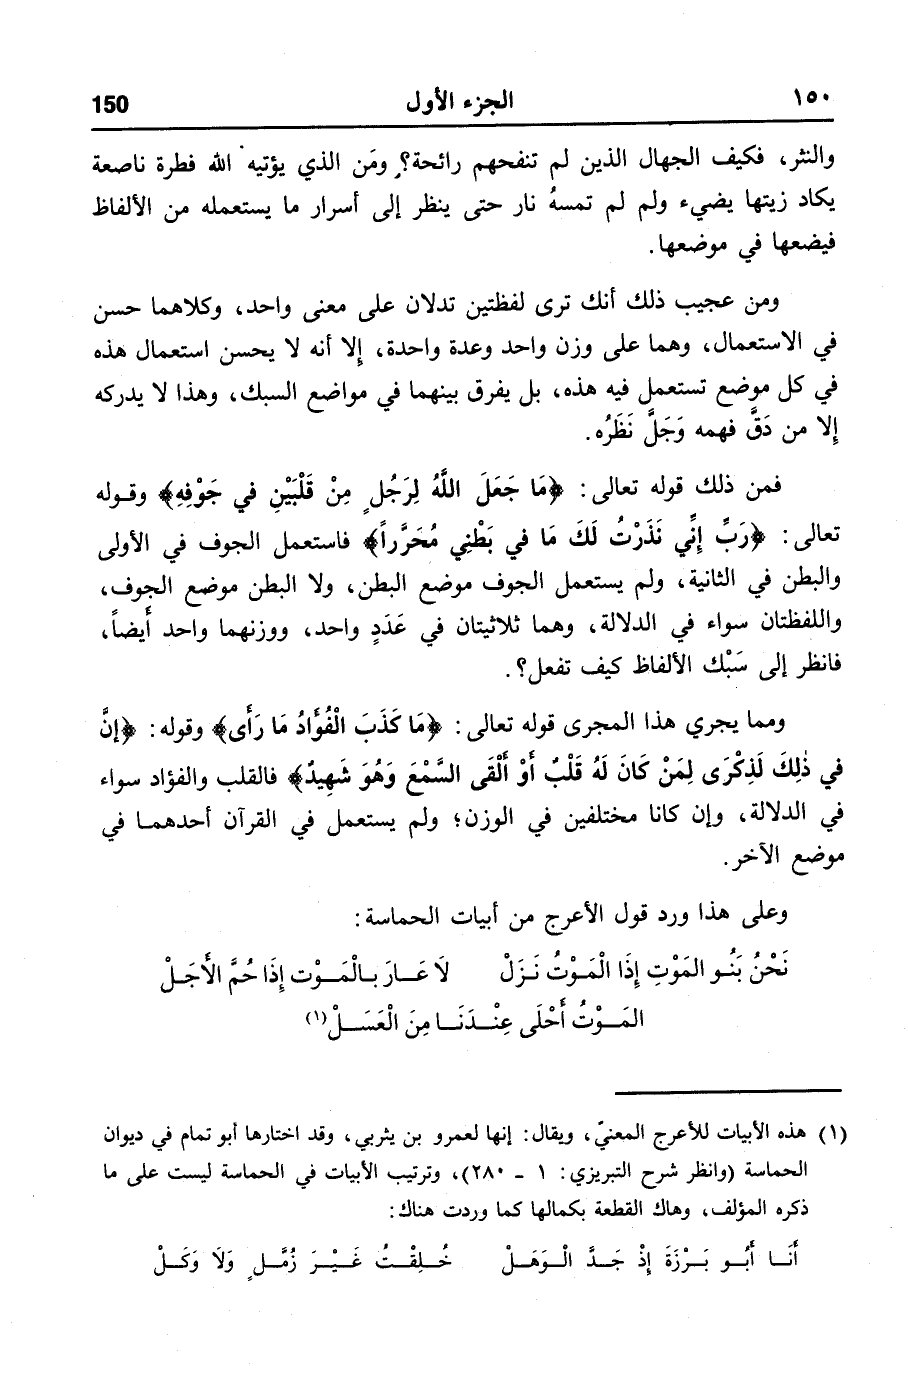 ١٥٠ الجزء الأول 150
والنثر، فكيف الجهال الذين لم تنفحهم رائحة؟ ومَن الذي يؤتيه الله فطرة ناصعة
يكاد زيتها يضيء ولم لم تمسهُ نار حتى ينظر إلى أسرار ما يستعمله من الألفاظ
فيضعها في موضعها.
ومن عجيب ذلك أنك ترى لفظتين تدلان على معنى واحد، وكلاهما حسن
في الاستعمال، وهما على وزن واحد وعدة واحدة، إلا أنه لا يحسن استعمال هذه
في كل موضع تستعمل فيه هذه، بل يفرق بينهما في مواضع السبك، وهذا لا يدركه
إلا من دَقَّ فهمه وَجَلَّ نَظَرُه.
فمن ذلك قوله تعالى: ﴿مَا جَعَلَ اللَّهُ لِرَجُلٍ مِنْ قَلْبَيْنِ في جَوْفِهِ﴾ وقوله
تعالى: ﴿رَبِّ إِنِّي نَذَرْتُ لَكَ مَا في بَطْنِي مُحَرَّراً﴾ فاستعمل الجوف في الأولى
والبطن في الثانية، ولم يستعمل الجوف موضع البطن، ولا البطن موضع الجوف،
واللفظتان سواء في الدلالة، وهما ثلاثيتان في عَدَدٍ واحد، ووزنهما واحد أَيضاً،
فانظر إلى سَبْك الألفاظ كيف تفعل؟.
ومما يجري هذا المجرى قوله تعالى: ﴿مَا كَذَبَ الْفُؤَادُ مَا رَأَى﴾ وقوله: ﴿إِنَّ
في ذٰلِكَ لَذِكْرَى لِمَنْ كَانَ لَهُ قَلْبٌ أَوْ أَلْقَى السَّمْعَ وَهُوَ شَهِيدٌ﴾ فالقلب والفؤاد سواء
في الدلالة، وإن كانا مختلفين في الوزن؛ ولم يستعمل في القرآن أحدهما في
موضع الآخر.
وعلى هذا ورد قول الأعرج من أبيات الحماسة:
نَحْنُ بَنُو المَوْتِ إِذَا الْمَوْتُ نَزَلْ لَا عَارَ بِالْمَوْتِ إِذَا حُمَّ الأَجَلْ
المَوْتُ أَحْلَى عِنْدَنَا مِنَ الْعَسَلْ(١)
(١) هذه الأبيات للأعرج المعنيّ، ويقال: إنها لعمرو بن يثربي، وقد اختارها أبو تمام في ديوان
الحماسة (وانظر شرح التبريزي: ١ ـ ٢٨٠)، وترتيب الأبيات في الحماسة ليست على ما
ذكره المؤلف، وهاك القطعة بكمالها كما وردت هناك:
أَنَا أَبُو بَرْزَةَ إِذْ جَدَّ الْوَهَلْ خُلِقْتُ غَيْرَ زُمَّلٍ وَلَا وَكَلْ